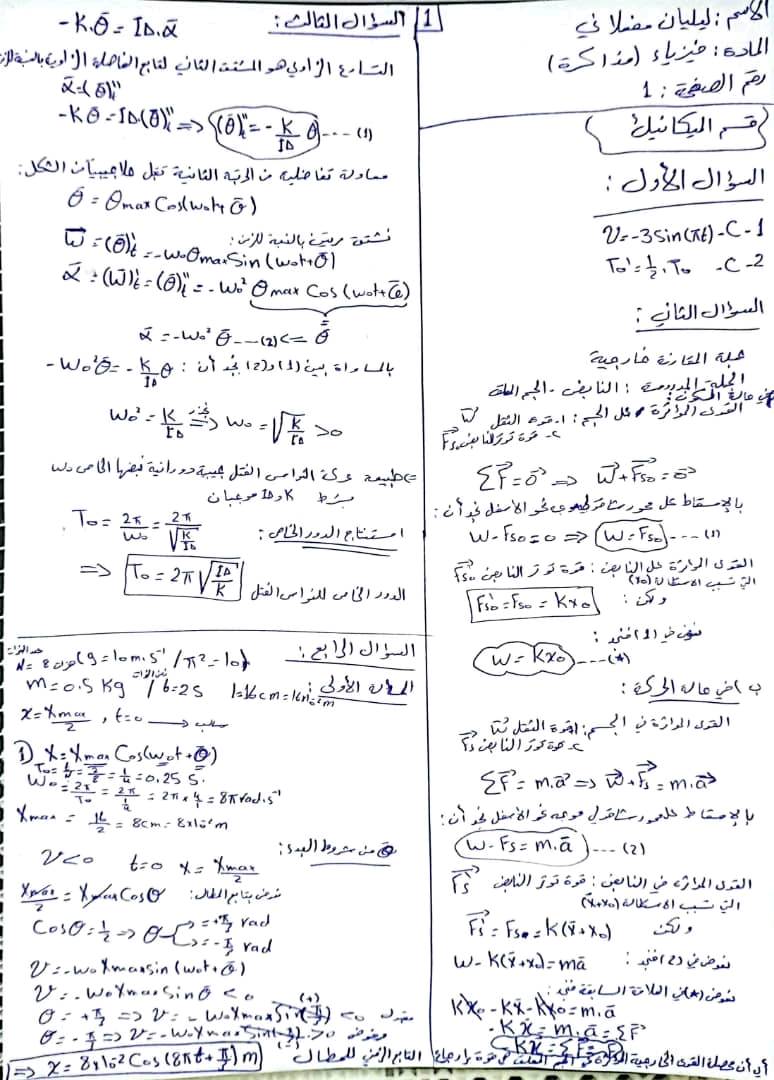 الاسم : ليليان مفضلاني
المادة : فيزياء (مذاكرة)
رقم الصفحة : 1
قسم الميكانيك
السؤال الأول :
v=-3sin(πt) -C -1
T₀'=½.T₀ -C -2
السؤال الثاني :
جملة المقارنة خارجية
الجملة المدروسة : النابض - الجسم المعلق
في حالة السكون :
القوى المؤثرة على الجسم : 1- قوة الثقل W⃗
2- قوة توتر النابض F⃗s₀
ΣF⃗=0⃗ => W⃗+F⃗s₀=0⃗
بالإسقاط على محور شاقولي نحو الأسفل نجد أن :
W-Fs₀=0 => W=Fs₀ ---- (1)
القوى المؤثرة على النابض : قوة توتر النابض F⃗s₀
التي تسبب الاستطالة (x₀)
ولكن : F's₀=Fs₀=Kx₀
نعوض في (1) فنجد :
W=Kx₀ ---(*)
ب) في حالة الحركة :
القوى المؤثرة في الجسم : 1- قوة الثقل W⃗
2- قوة توتر النابض F⃗s
ΣF⃗=m.a⃗ => W⃗+F⃗s=m.a⃗
بالإسقاط على محور شاقولي موجه نحو الأسفل نجد أن :
W-Fs=m.ā ---- (2)
القوى المؤثرة في النابض : قوة توتر النابض F⃗'s
التي تسبب الاستطالة (x̄+x₀)
ولكن F's=Fs=K(x̄+x₀)
نعوض في (2) فنجد : W-K(x̄+x₀)=mā
نعوض (*) في العلاقة السابقة فنجد :
Kx₀-Kx̄-Kx₀=m.ā
-Kx̄=m.ā=ΣF
أي أن محصلة القوى الخارجية المؤثرة في الجسم هي قوة إرجاع
1
السؤال الثالث :
-K.θ̄=I∆.ᾱ
التسارع الزاوي هو المشتق الثاني لتابع الفاصلة الزاوية بالنسبة للزمن
ᾱ=(θ̄)"t
-Kθ̄=I∆(θ̄)"t => (θ̄)"t=-K/I∆ θ̄ ---- (1)
معادلة تفاضلية من المرتبة الثانية تقبل حلاً جيبياً من الشكل :
θ̄=θmax Cos(ω₀t+φ̄)
نشتق مرتين بالنسبة للزمن :
ω̄=(θ̄)'t=-ω₀θmax Sin(ω₀t+φ̄)
ᾱ=(ω̄)'t=(θ̄)"t=-ω₀² θmax Cos(ω₀t+φ̄)
θ̄
ᾱ=-ω₀² θ̄ ---(2) <=
بالمساواة بين (1) و(2) نجد أن : -ω₀²θ̄=-K/I∆ θ̄
ω₀²=K/I∆ => ω₀=√(K/I∆) >0
=> طبيعة حركة النواس الفتل جيبية دورانية نبضها الخاص ω₀
بشرط K و I∆ موجبان
استنتاج الدور الخاص : T₀=2π/ω₀=2π/√(K/I∆)
=> T₀=2π√(I∆/K) الدور الخاص للنواس الفتل
السؤال الرابع :
(g=10m.s⁻¹ / π²=10)
المسألة الأولى : N=8
m=0.5 Kg / t=2S l=16cm=16x10⁻²m
x=Xmax/2 , t=0 → سالب
1) x̄=Xmax Cos(ω₀t+φ̄)
T₀=t/N=2/8=1/4=0.25 s
ω₀=2π/T₀=2π/¼=2π×4/1=8πrad.s⁻¹
Xmax=16/2=8cm=8x10⁻²m
φ̄ من شروط البدء :
v<0 t=0 x=Xmax/2
نعوض بتابع المطال : Xmax/2=Xmax Cosφ
Cosφ=½ => φ=+π/3 rad
=-π/3 rad
v=-ω₀Xmax sin(ω₀t+φ̄)
v=-ω₀Xmax Sinφ̄ <0
φ=+π/3 => v=-ω₀Xmax Sin(π/3) <0 مقبول
φ=-π/3 => v=-ω₀Xmax Sin(-π/3) >0 مرفوض
التابع الزمني للمطال
=> x̄=8x10⁻² Cos(8πt+π/3) m